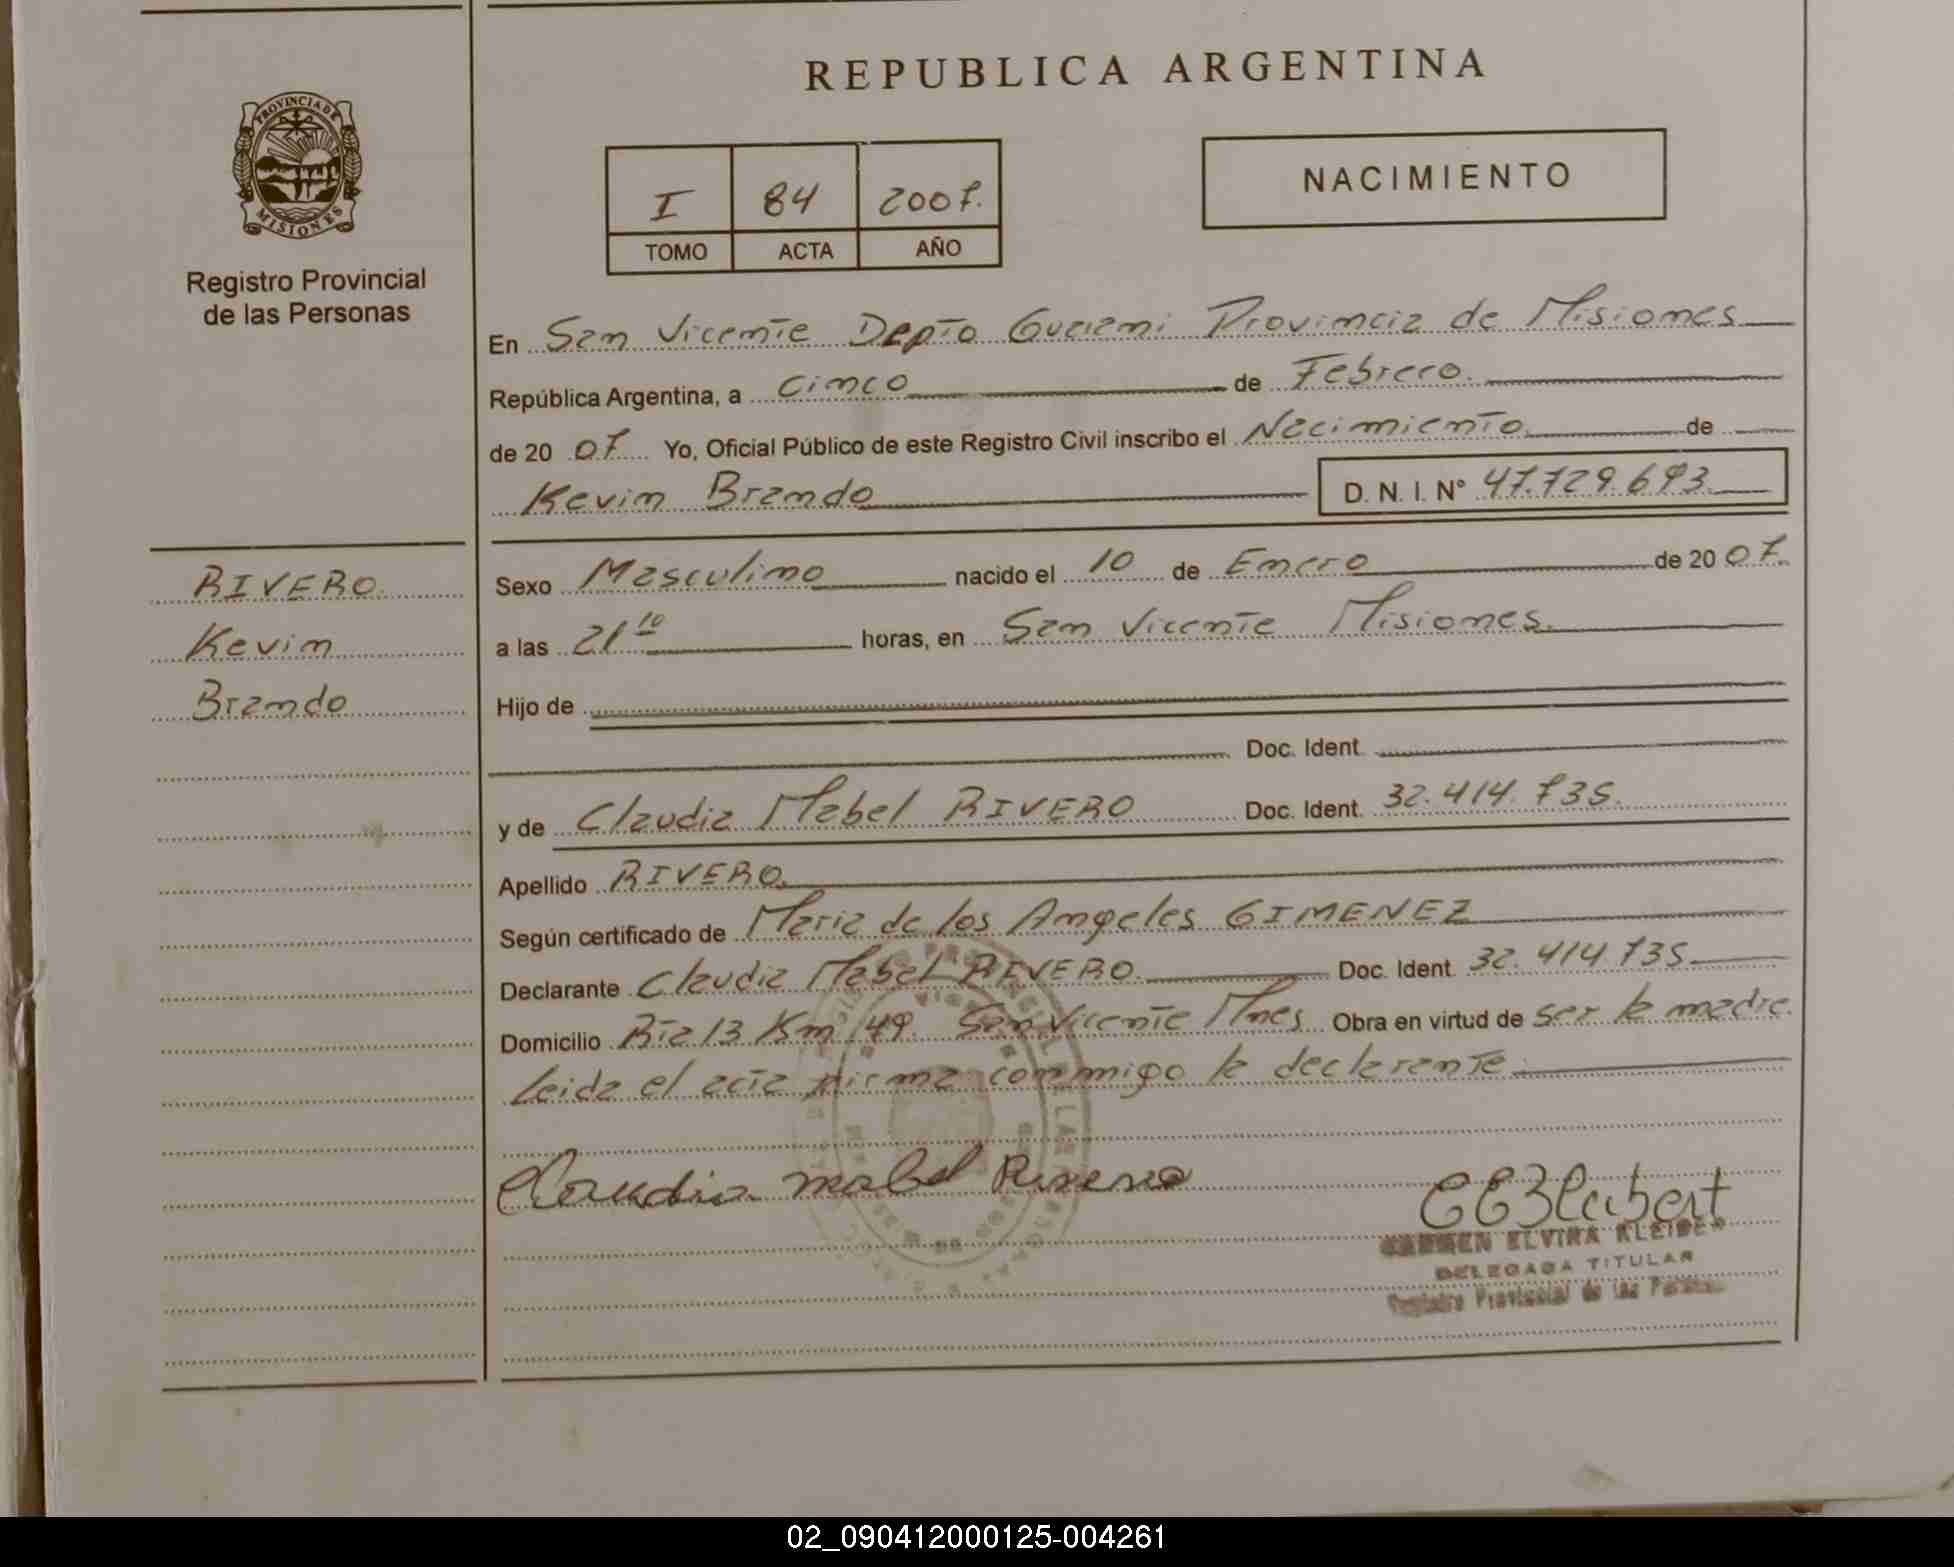 REPUBLICA ARGENTINA
PROVINCIA DE
MISIONES
Registro Provincial
de las Personas
I 84 2007.
TOMO ACTA AÑO
NACIMIENTO
En San Vicente Depto Guarani Provincia de Misiones
República Argentina, a Cinco de Febrero.
de 20 07 Yo, Oficial Público de este Registro Civil inscribo el Nacimiento de
Kevin Brando D. N. I. N° 47.729.693
RIVERO
Kevin
Brando
Sexo Masculino nacido el 10 de Enero de 20 07.
a las 21 10 horas, en San Vicente Misiones.
Hijo de
Doc. Ident.
y de Claudia Mabel RIVERO Doc. Ident. 32.414.735.
Apellido RIVERO.
Según certificado de Maria de los Angeles GIMENEZ
Declarante Claudia Mabel RIVERO. Doc. Ident. 32.414.735
Domicilio Rta 13 Km 49. San Vicente Mnes Obra en virtud de ser la madre.
Leida el acta firma conmigo la declarante
Claudia Mabel Rivero
CARMEN ELVIRA
DELEGADA TITULAR
Registro Provincial de las Personas
02_090412000125-004261